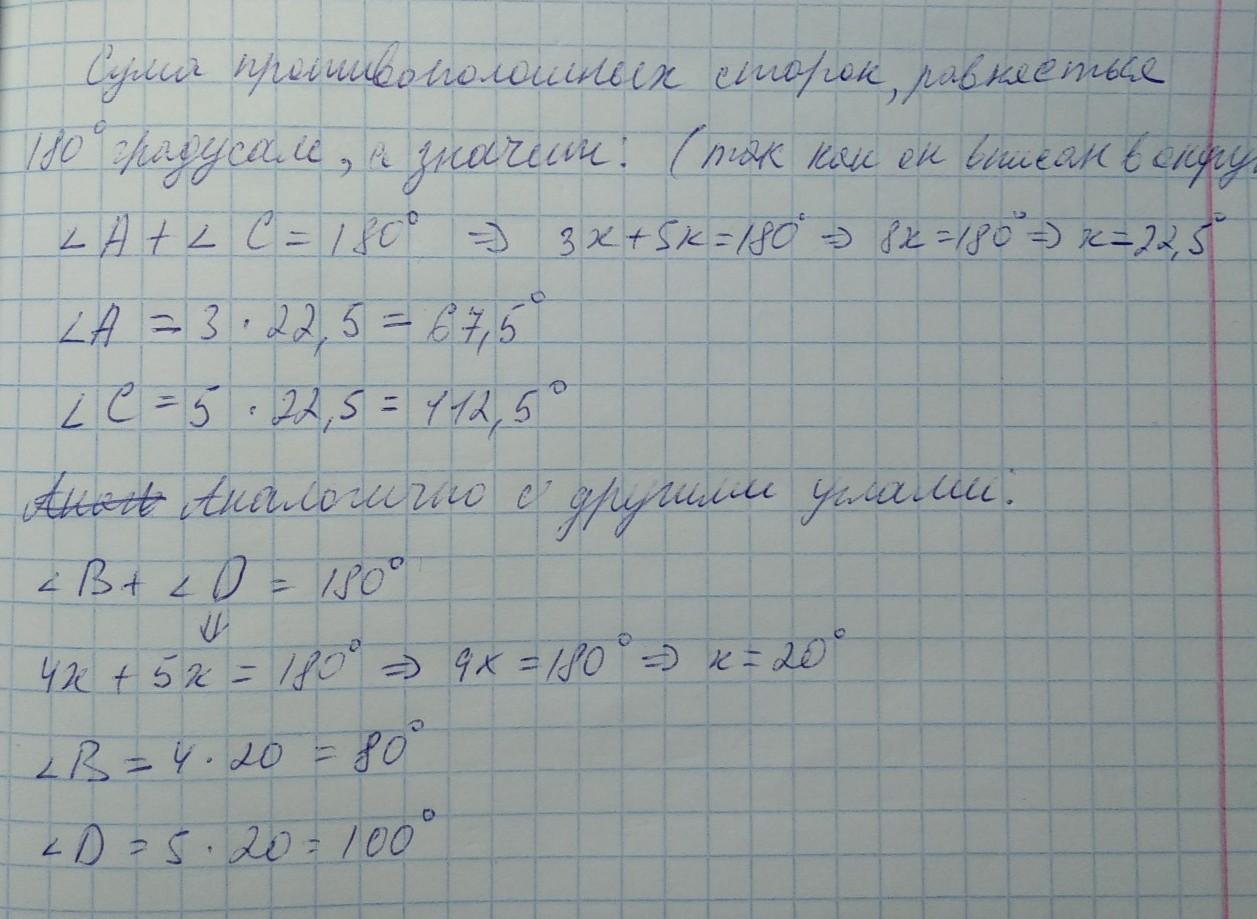 Сума противоположных сторон, равняеться
180° градусам, а значит: (так как он вписан в окру.
∠A + ∠ C = 180° ⇒ 3x + 5x = 180° ⇒ 8x = 180° ⇒ x = 22,5°
∠A = 3 · 22,5 = 67,5°
∠C = 5 · 22,5 = 112,5°
Аналогично с другими углами:
∠B + ∠D = 180°
⇓
4x + 5x = 180° ⇒ 9x = 180° ⇒ x = 20°
∠B = 4 · 20 = 80°
∠D = 5 · 20 = 100°